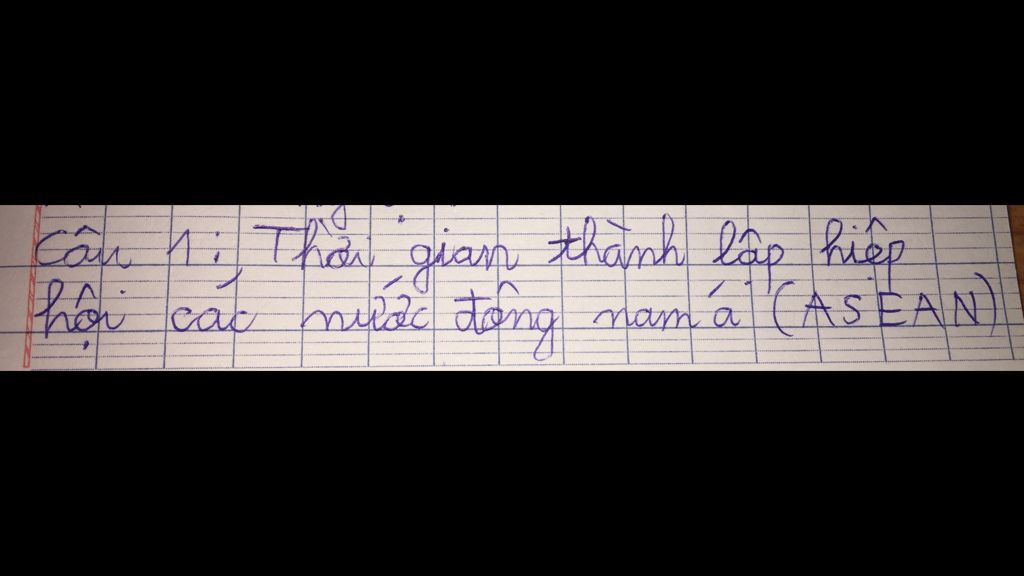 Câu 1: Thời gian thành lập hiệp
hội các nước đông nam á (ASEAN)